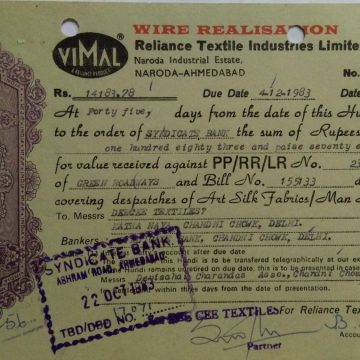 WIRE REALISATION
VIMAL
A RELIANCE PRODUCT
Reliance Textile Industries Limite
Naroda Industrial Estate,
NARODA-AHMEDABAD
No.
Rs. 14183.78 Due Date 4-12-1983 Date
At Forty five, days from the date of this Hu
to the order of SYNDICATE BANK the sum of Rupees
one hundred eighty three and paise seventy ei
for value received against PP/RR/LR No.
of GREEN ROADWAYS and Bill No. 155133
covering despatches of Art Silk Fabrics/Man
To Messrs DEECEE TEXTILES?
KATRA NAYA CHANDNI CHOWK, DELHI.
Bankers BANK, CHANDNI CHOWK, DELHI.
Hundi is to be transferred telegraphically at our ex
Hundi remains unpaid on due date, this is to be presented in case
within three days from the date of presentation.
SYNDICATE BANK
ASHRAM ROAD, AHMEDABAD
22 OCT 1983
TBD/DBD No.
CEE TEXTILES
For
Partner
Accou